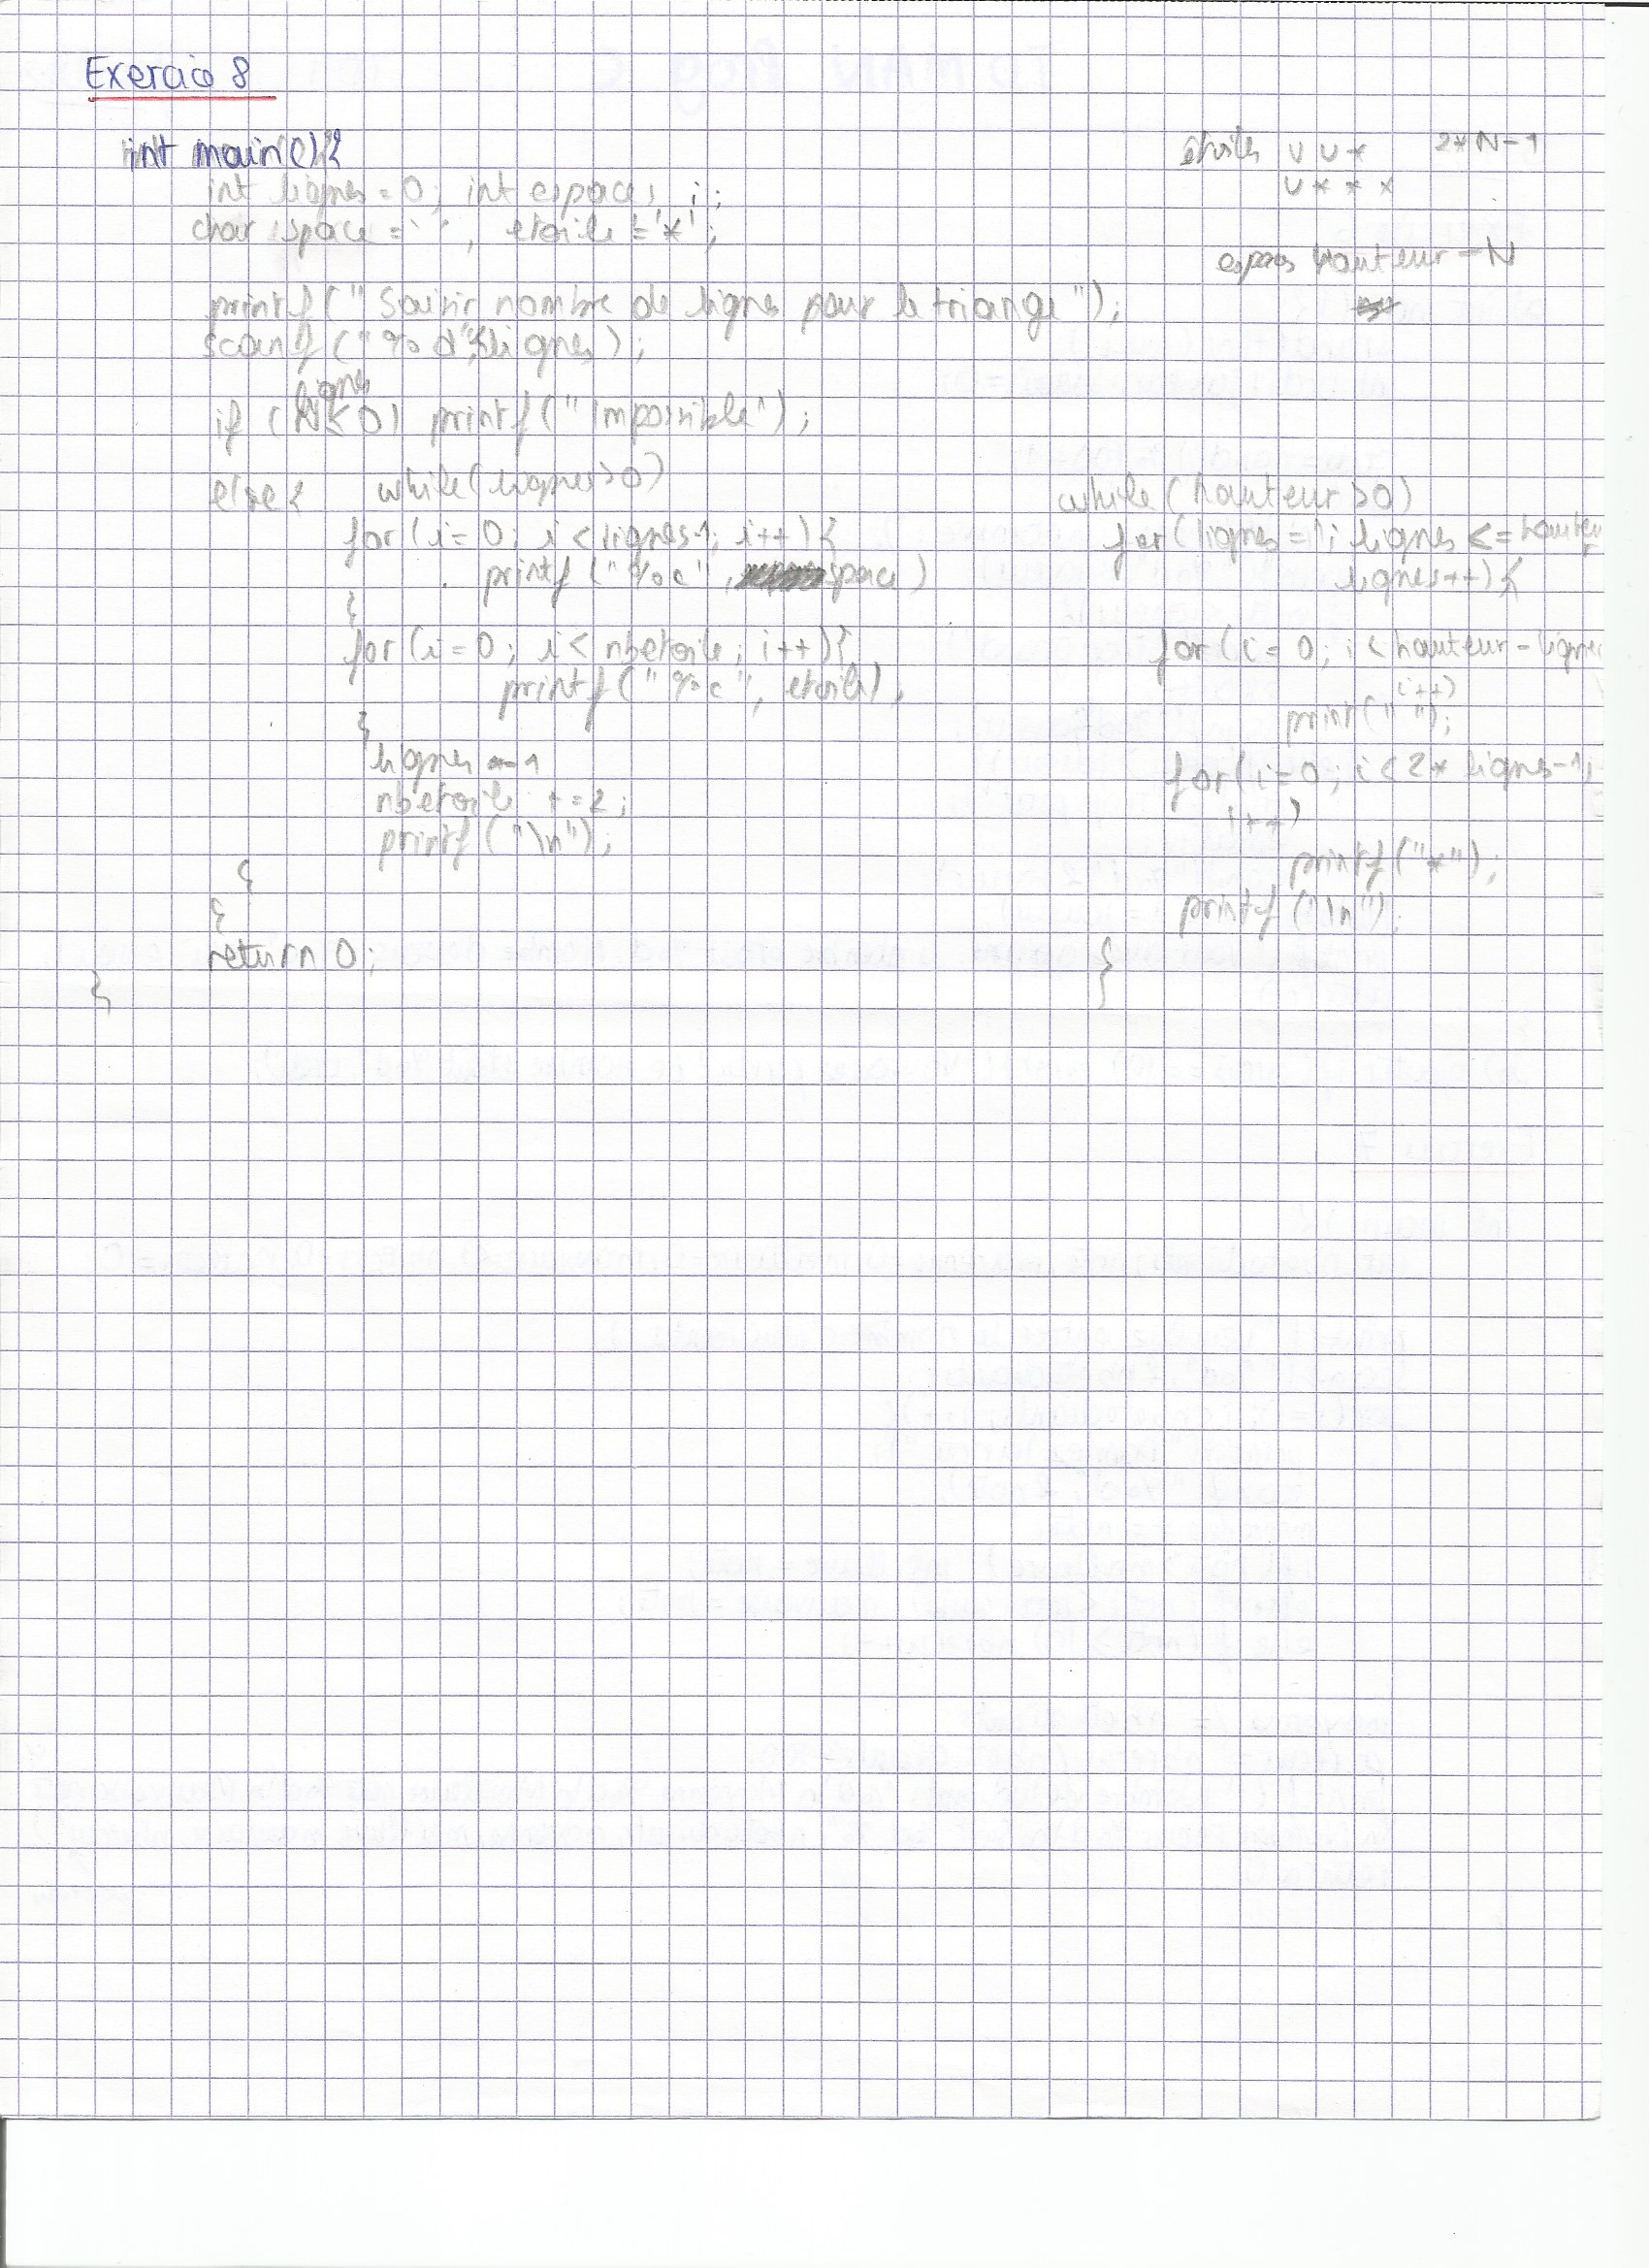 Exercice 8
int main(){
int lignes = 0; int espaces, i;
char space = ' ', etoile = '*';
printf("Saisir nombre de lignes pour le triange");
scanf("%d",&lignes);
lignes
if (N < 0) printf("Impossible");
else { while(lignes>0)
for(i=0; i<lignes-1; i++){
printf("%c", space)
}
for(i=0; i<nbetoile; i++){
printf("%c", etoile),
}
lignes -=1
nbetoile +=2;
printf("\n");
}
}
return 0;
}
etoiles ∪ ∪ * 2*N-1
∪ * * *
espaces hauteur - N
while(hauteur>0)
for(lignes=1; lignes <= hauteur
lignes++){
for(i=0; i<hauteur-lignes
i++)
print(" ");
for(i=0; i<2* lignes-1;
i++)
printf("*");
printf("\n");
}